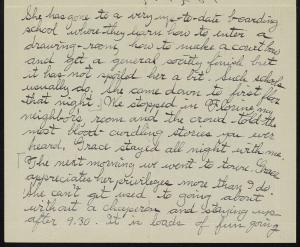 She has gone to a very up-to-date boarding
school where they learn how to enter a
drawing-room, how to make a court bow
and get a general society finish but
it has not spoiled her a bit. Such schools
usually do. She came down to first floor
that night. We stopped in Florine, my
neighbors room and the crowd told the
most blood-curdling stories you ever
heard, Grace stayed all night with me.
The next morning we went to town. Grace
appreciates her privileges more than I do.
She can't get used to going about
without a chaperon and staying up
after 9.30. It is loads of fun going